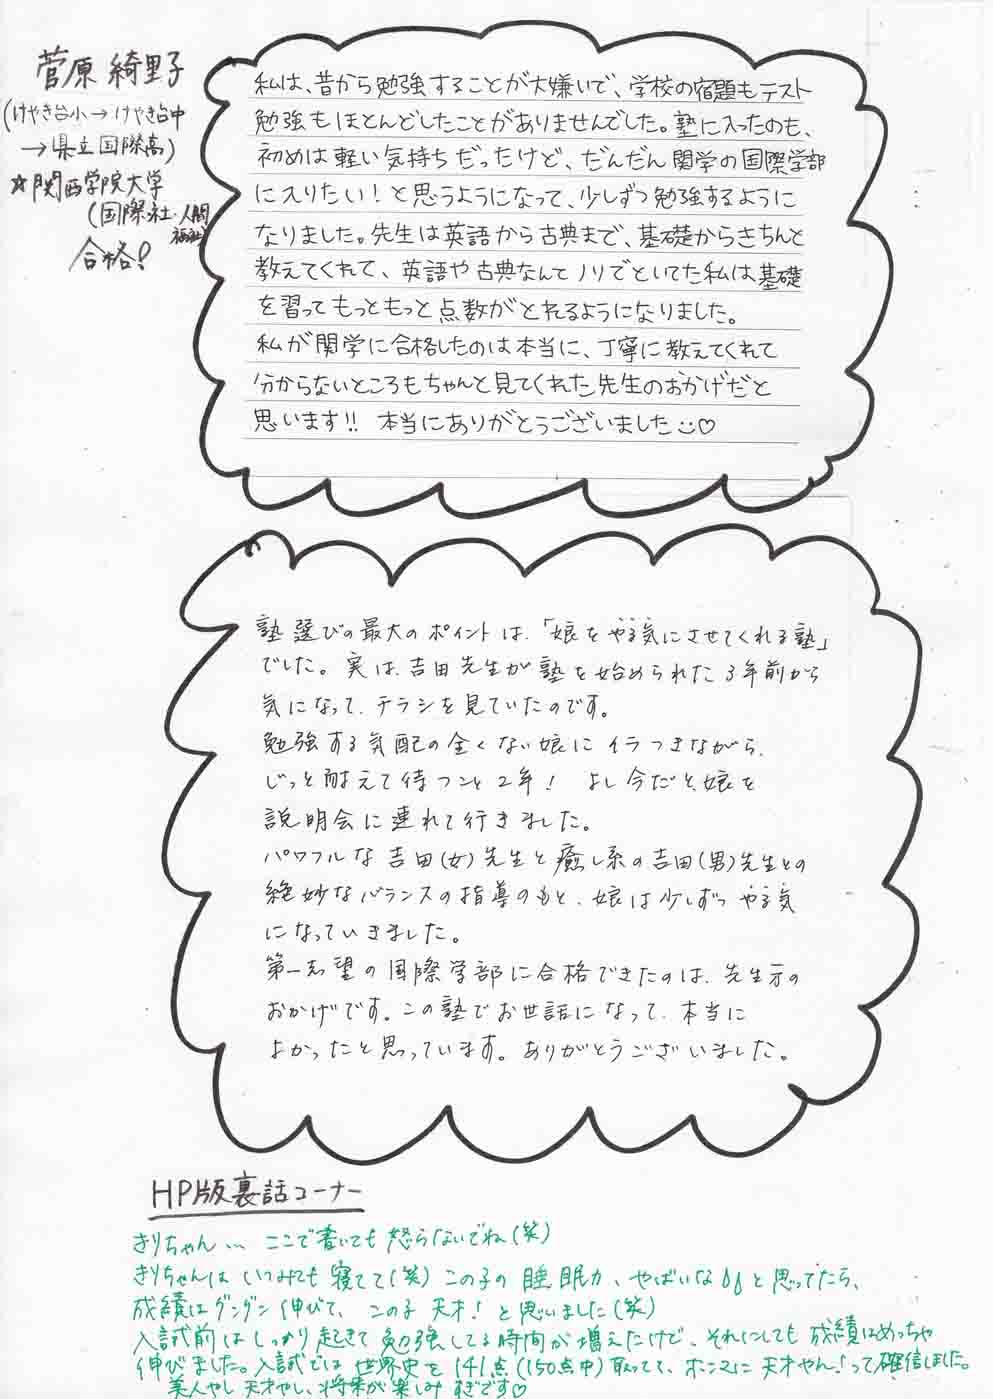 菅原 綺里子
(けやき台小→けやき台中
→県立国際高)
☆関西学院大学
(国際・社・人間福祉)
合格!
私は、昔から勉強することが大嫌いで、学校の宿題もテスト
勉強もほとんどしたことがありませんでした。塾に入ったのも、
初めは軽い気持ちだったけど、だんだん関学の国際学部
に入りたい!と思うようになって、少しずつ勉強するように
なりました。先生は英語から古典まで、基礎からきちんと
教えてくれて、英語や古典なんてノリでといてた私は基礎
を習ってもっともっと点数がとれるようになりました。
私が関学に合格したのは本当に、丁寧に教えてくれて
分からないところもちゃんと見てくれた先生のおかげだと
思います!! 本当にありがとうございました☺♡
塾選びの最大のポイントは、「娘をやる気にさせてくれる塾」
でした。実は、吉田先生が塾を始められた3年前から
気になって、チラシを見ていたのです。
勉強する気配の全くない娘にイラつきながら、
じっと耐えて待つこと2年! よし今だと、娘を
説明会に連れて行きました。
パワフルな吉田(女)先生と癒し系の吉田(男)先生との
絶妙なバランスの指導のもと、娘は少しずつやる気
になっていきました。
第一志望の国際学部に合格できたのは、先生方の
おかげです。この塾でお世話になって、本当に
よかったと思っています。ありがとうございました。
HP版裏話コーナー
きりちゃん… ここで書いても怒らないでね(笑)
きりちゃんはいつみても寝てて(笑)この子の睡眠力、やばいなぁと思ってたら、
成績はグングン伸びて、この子天才!と思いました(笑)
入試前はしっかり起きて勉強してる時間が増えたけど、それにしても成績はめっちゃ
伸びました。入試では世界史を141点(150点中)取ってて、ホンマに天才やん!って確信しました。
美人やし天才やし、将来が楽しみすぎです♡